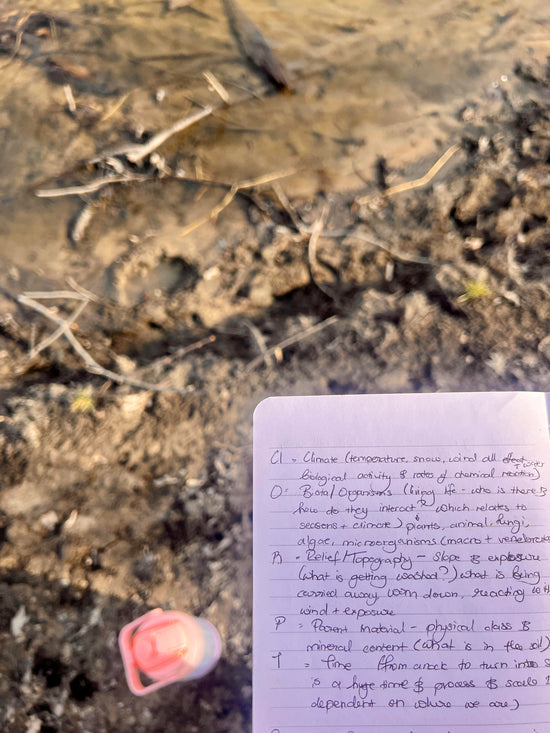 Cl = Climate (temperature, snow, wind all effect + water
biological activity & rates of chemical reaction)
O = Biota/Organisms (living life - who is there &
how do they interact? which relates to
seasons + climate) plants, animal, fungi,
algae, microorganisms (macro + vertebrates
R = Relief/Topography - slope & exposure
(what is getting washed?) what is being
carried away, worn down, reacting to th
wind + exposure
P = Parent Material - physical class &
mineral content (what is in the soil)
T = Time (from rock to turn into s
is a huge time & process & scale
dependent on where we are)